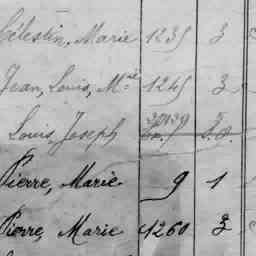 Célestin, Marie 1235 3
Jean, Louis, M.ie 1245 3
Louis Joseph
Pierre, Marie 9 1
Pierre, Marie 1260 3